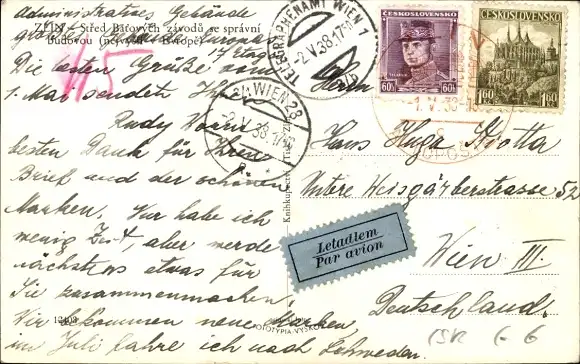 administratives Gebäude
ZLÍN - Střed Baťových závodů se správní
budovou (nejvyšší v Evropě)
17 etag
Die esten Grüße vom
1. Mai sendet Ihr
Rudy
besten Dank für Ihren
Brief und der schönen
Marken. Nur habe ich
wenig Zeit aber werde
nächstens etwas für
Sie zusammenmachen.
Wir bekommen neue Marken,
im Juli fahre ich nach Schweden.
12403
FOTOTYPIA-VYŠKOV
TELEGRAPHENAMT WIEN 1
-2.V.38.17
WIEN
-2.V.38.17
ČESKOSLOVENSKO
60h 60h
ČESKOSLOVENSKO
1.60 1.60
1.V.38
Herrn
Hans Hugo Hiotta
Untere Weisgärberstrasse 52
Wien III.
Deutschland.
Letadlem
Par avion